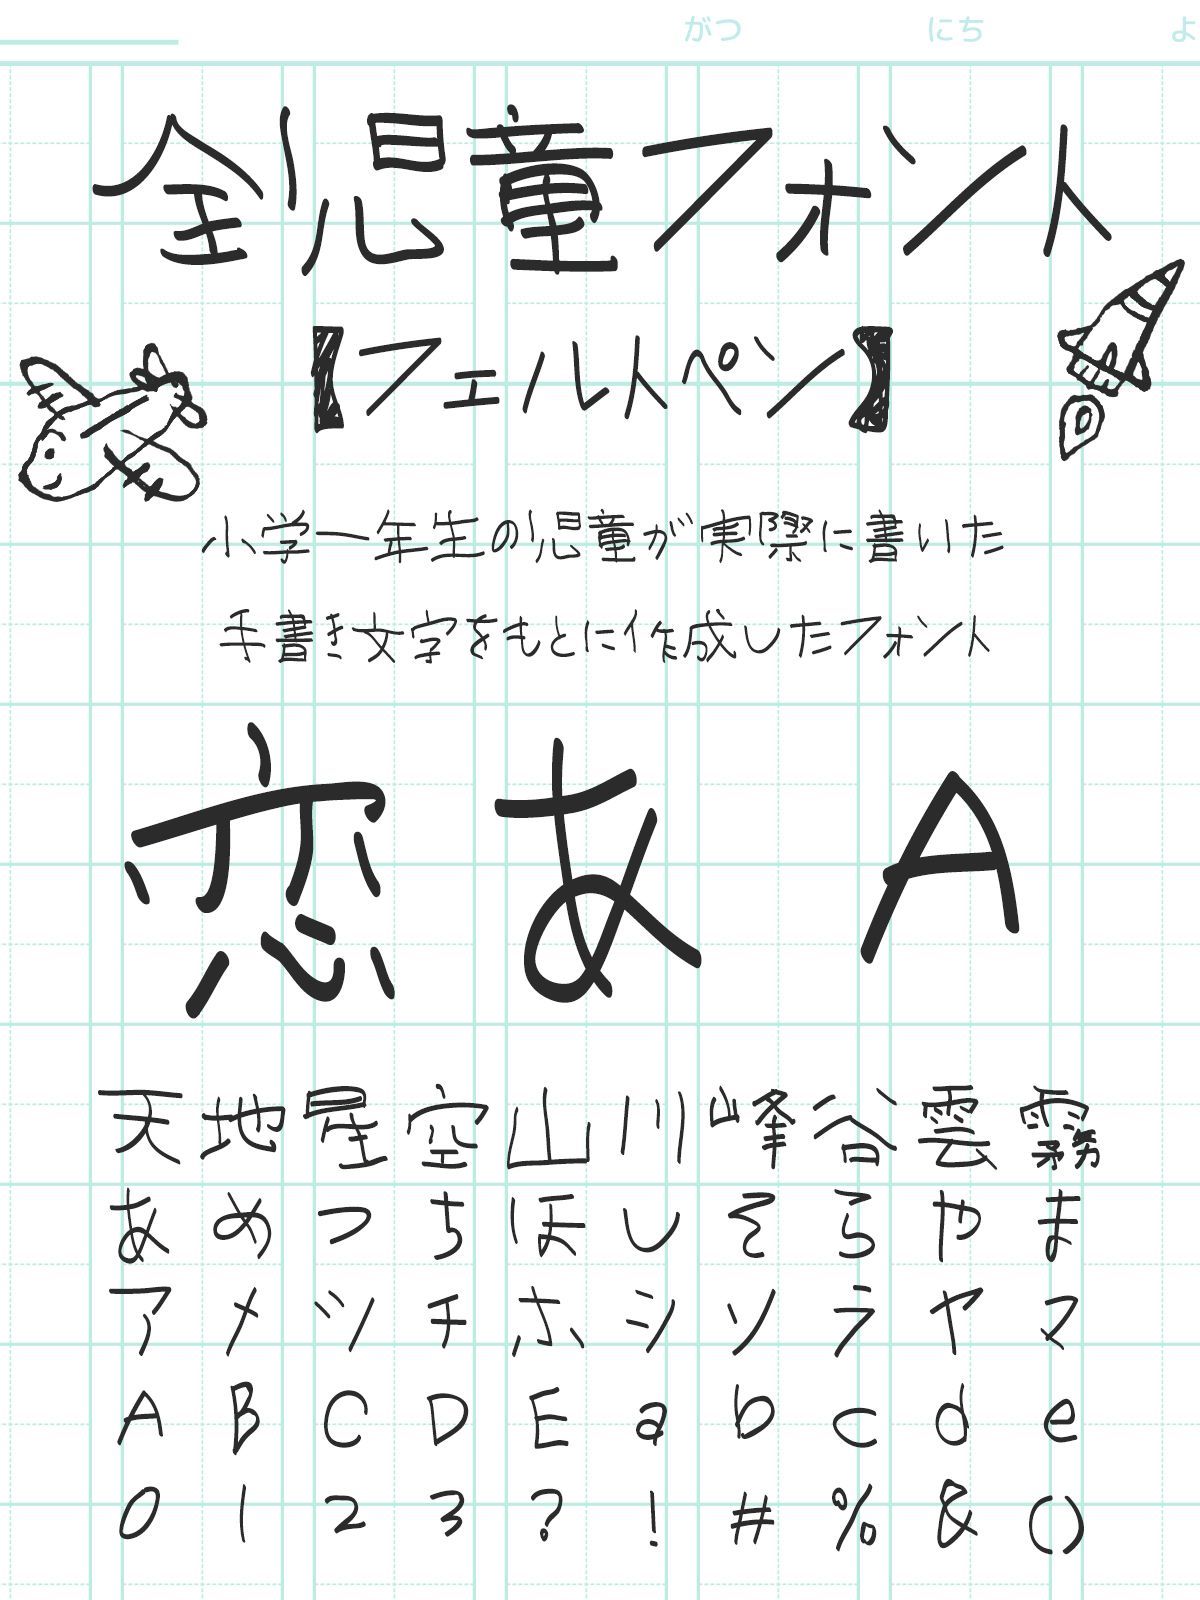 がつ にち よ
全児童フォント
【フェルトペン】
小学一年生の児童が実際に書いた
手書き文字をもとに作成したフォント
恋 あ A
天 地 星 空 山 川 峰 谷 雲 霧
あ め つ ち ほ し そ ら や ま
ア メ ツ チ ホ シ ソ ラ ヤ マ
A B C D E a b c d e
0 1 2 3 ? ! # % & ()